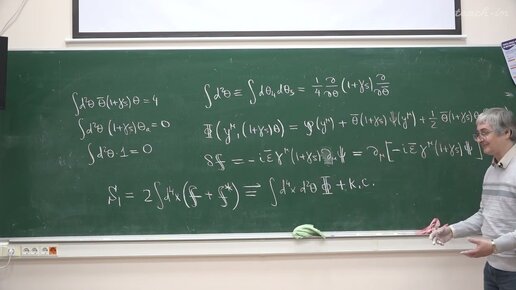 teach-in
∫d²θ θ̄(1+γ₅)θ = 4
∫d²θ (1+γ₅)θₐ = 0
∫d²θ·1 = 0
∫d²θ ≡ ∫dθ₄dθ₃ = 1/4 ∂/∂θ (1+γ₅) ∂/∂θ̄
Φ(y^μ, (1+γ₅)θ) = φ(y^μ) + θ̄(1+γ₅)ψ(y^μ) + 1/2 θ̄(1+γ₅)θ
δf = -iε̄γ^μ(1+γ₅)∂_μψ = ∂_μ[-iε̄γ^μ(1+γ₅)ψ]
S₁ = 2∫d⁴x(f + f*) = ∫d⁴x d²θ Φ + к.с.